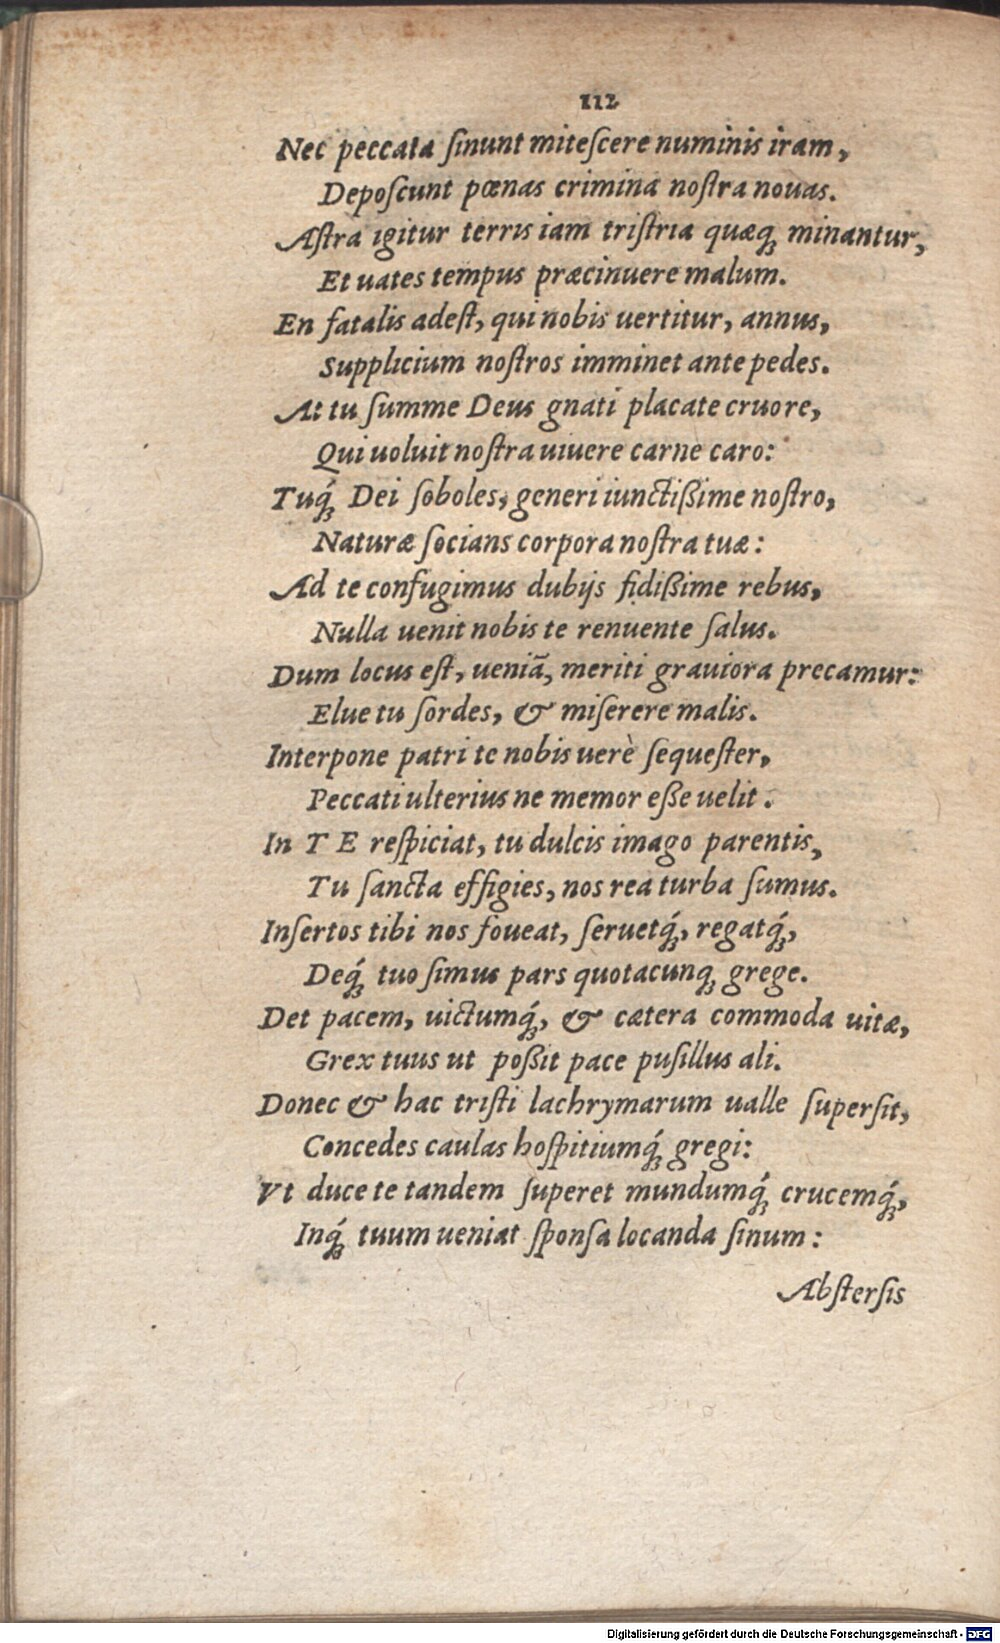 112
Nec peccata ſinunt miteſcere numinis iram,
Depoſcunt pœnas crimina noſtra nouas.
Aſtra igitur terris iam triſtria quæqꝫ minantur,
Et uates tempus præcinuere malum.
En fatalis adeſt, qui nobis uertitur, annus,
Supplicium noſtros imminet ante pedes.
At tu ſumme Deus gnati placate cruore,
Qui uoluit noſtra uiuere carne caro:
Tuq́ꝫ Dei ſoboles, generi iunctißime noſtro,
Naturæ ſocians corpora noſtra tuæ:
Ad te confugimus dubijs fidißime rebus,
Nulla uenit nobis te renuente ſalus.
Dum locus eſt, ueniã, meriti grauiora precamur:
Elue tu ſordes, & miſerere malis.
Interpone patri te nobis uerè ſequeſter,
Peccati ulterius ne memor eße uelit.
In T E reſpiciat, tu dulcis imago parentis,
Tu ſancta effigies, nos rea turba ſumus.
Inſertos tibi nos foueat, ſeruetq́ꝫ, regatq́ꝫ,
Deq́ꝫ tuo ſimus pars quotacunqꝫ grege.
Det pacem, uictumq́ꝫ, & cætera commoda uitæ,
Grex tuus ut poßit pace puſillus ali.
Donec & hac triſti lachrymarum ualle ſuperſit,
Concedes caulas hoſpitiumq́ꝫ gregi:
Vt duce te tandem ſuperet mundumq́ꝫ crucemq́ꝫ,
Inq́ꝫ tuum ueniat ſponſa locanda ſinum:
Abſterſis
Digitalisierung gefördert durch die Deutsche Forschungsgemeinschaft - DFG